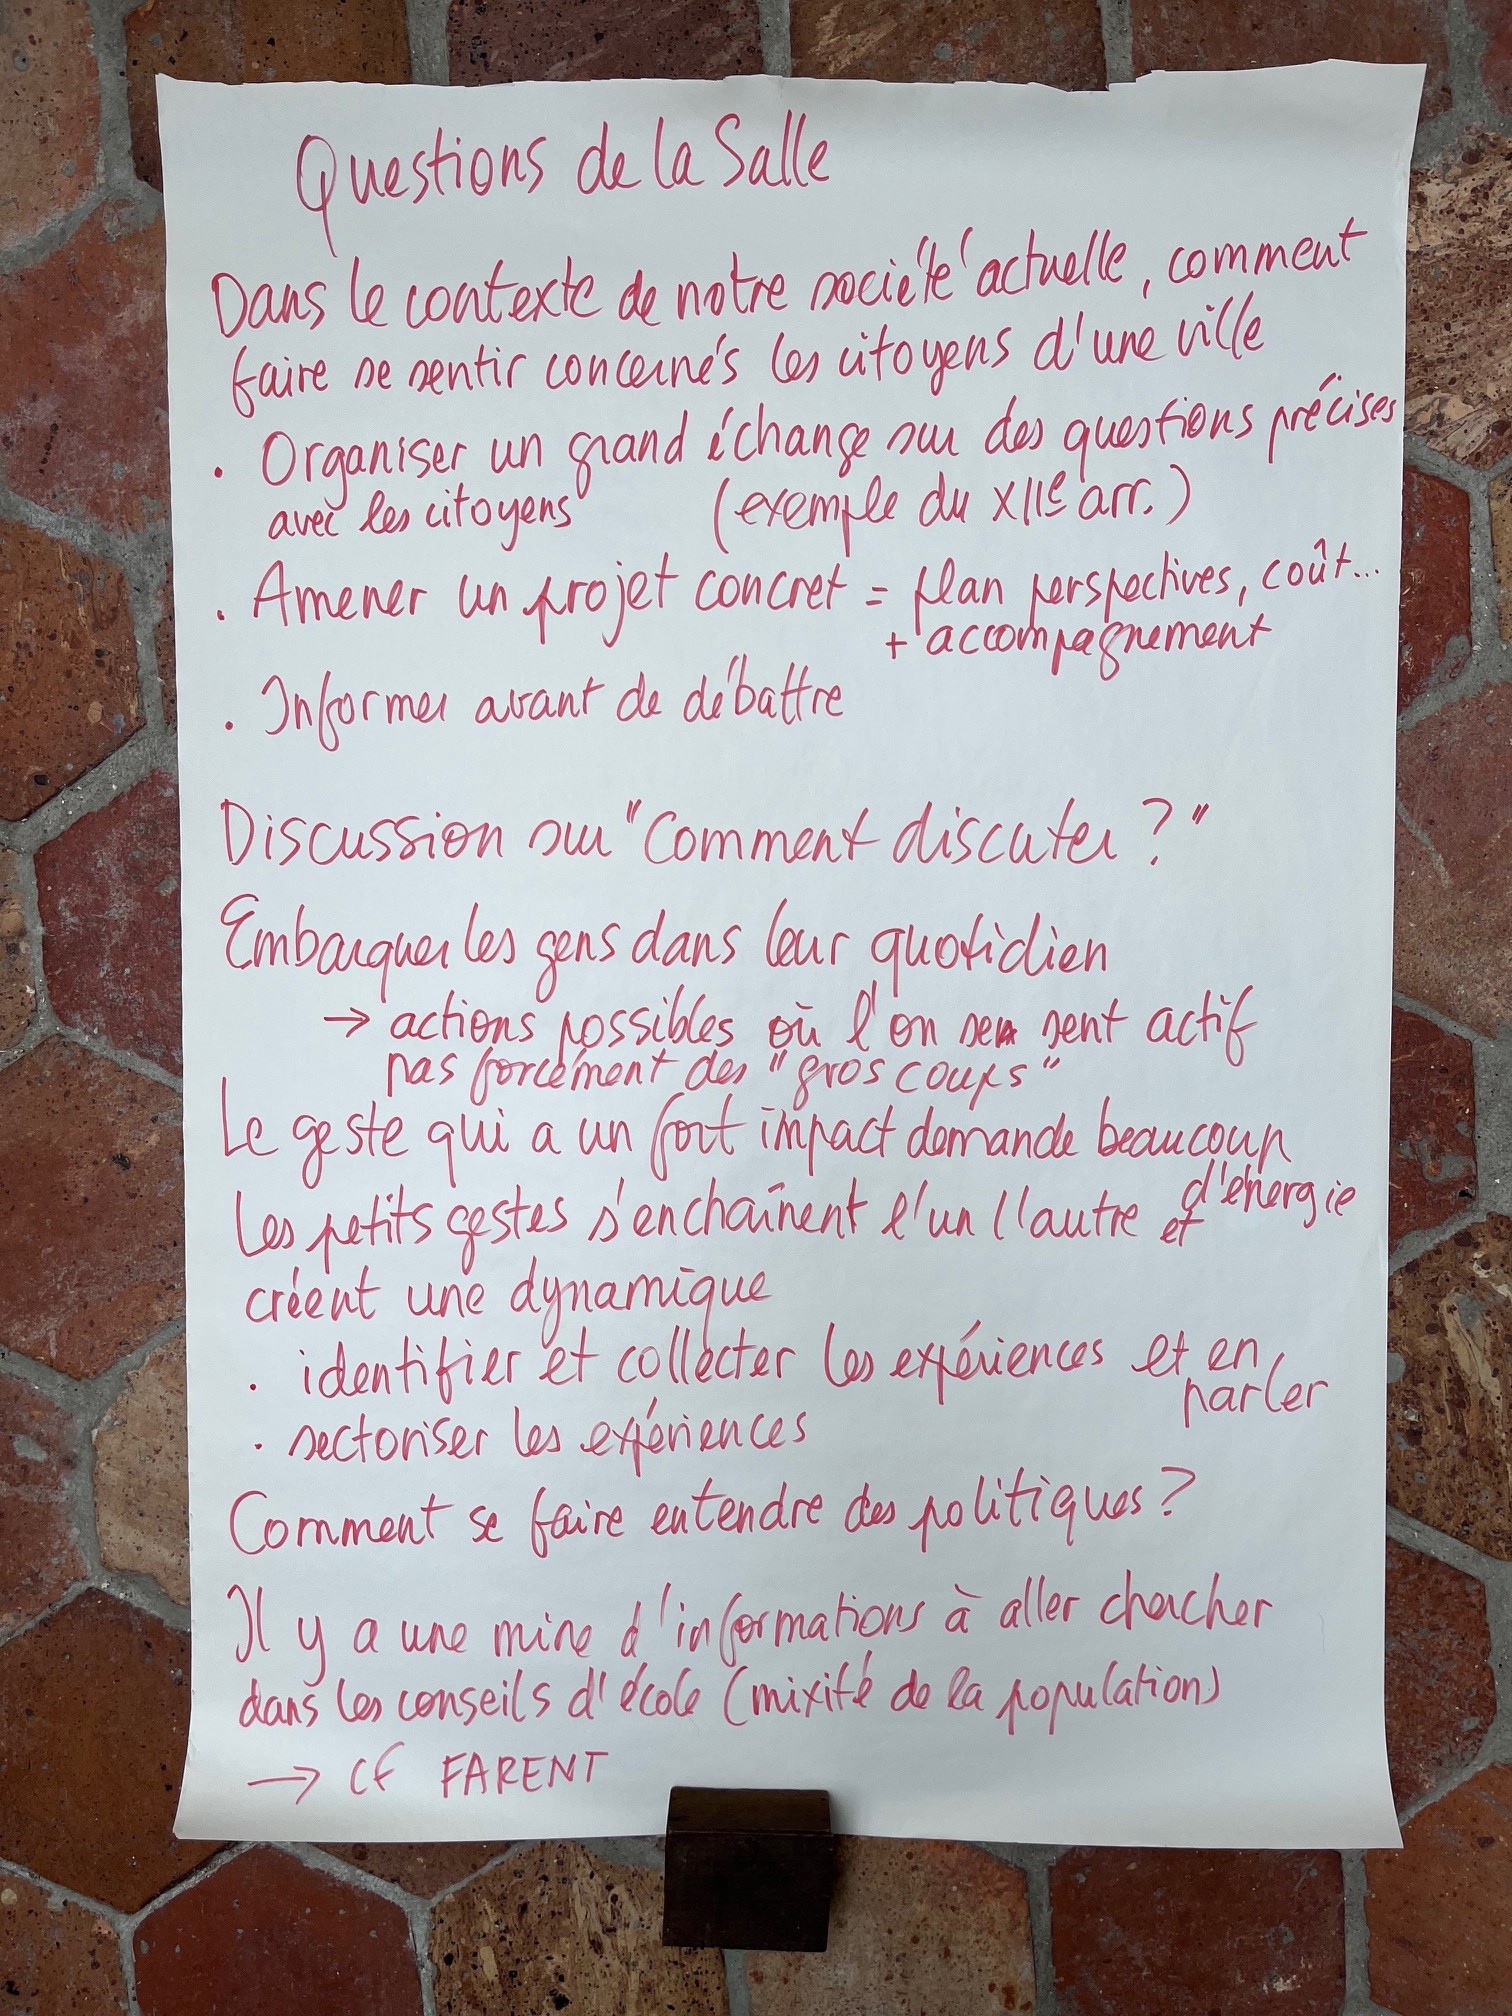 Questions de la Salle
Dans le contexte de notre société actuelle, comment
faire se sentir concernés les citoyens d'une ville
. Organiser un grand échange sur des questions précises
avec les citoyens (exemple du XIIe arr.)
. Amener un projet concret = plan perspectives, coût...
+ accompagnement
. Informer avant de débattre
Discussion sur "Comment discuter ?"
Embarquer les gens dans leur quotidien
→ actions possibles où l'on se sent actif
pas forcément des "gros coups"
Le geste qui a un fort impact demande beaucoup
d'énergie
Les petits gestes s'enchaînent l'un l'autre et
créent une dynamique
. identifier et collecter les expériences et en
parler
. sectoriser les expériences
Comment se faire entendre des politiques ?
Il y a une mine d'informations à aller chercher
dans les conseils d'école (mixité de la population)
→ CF FARENT